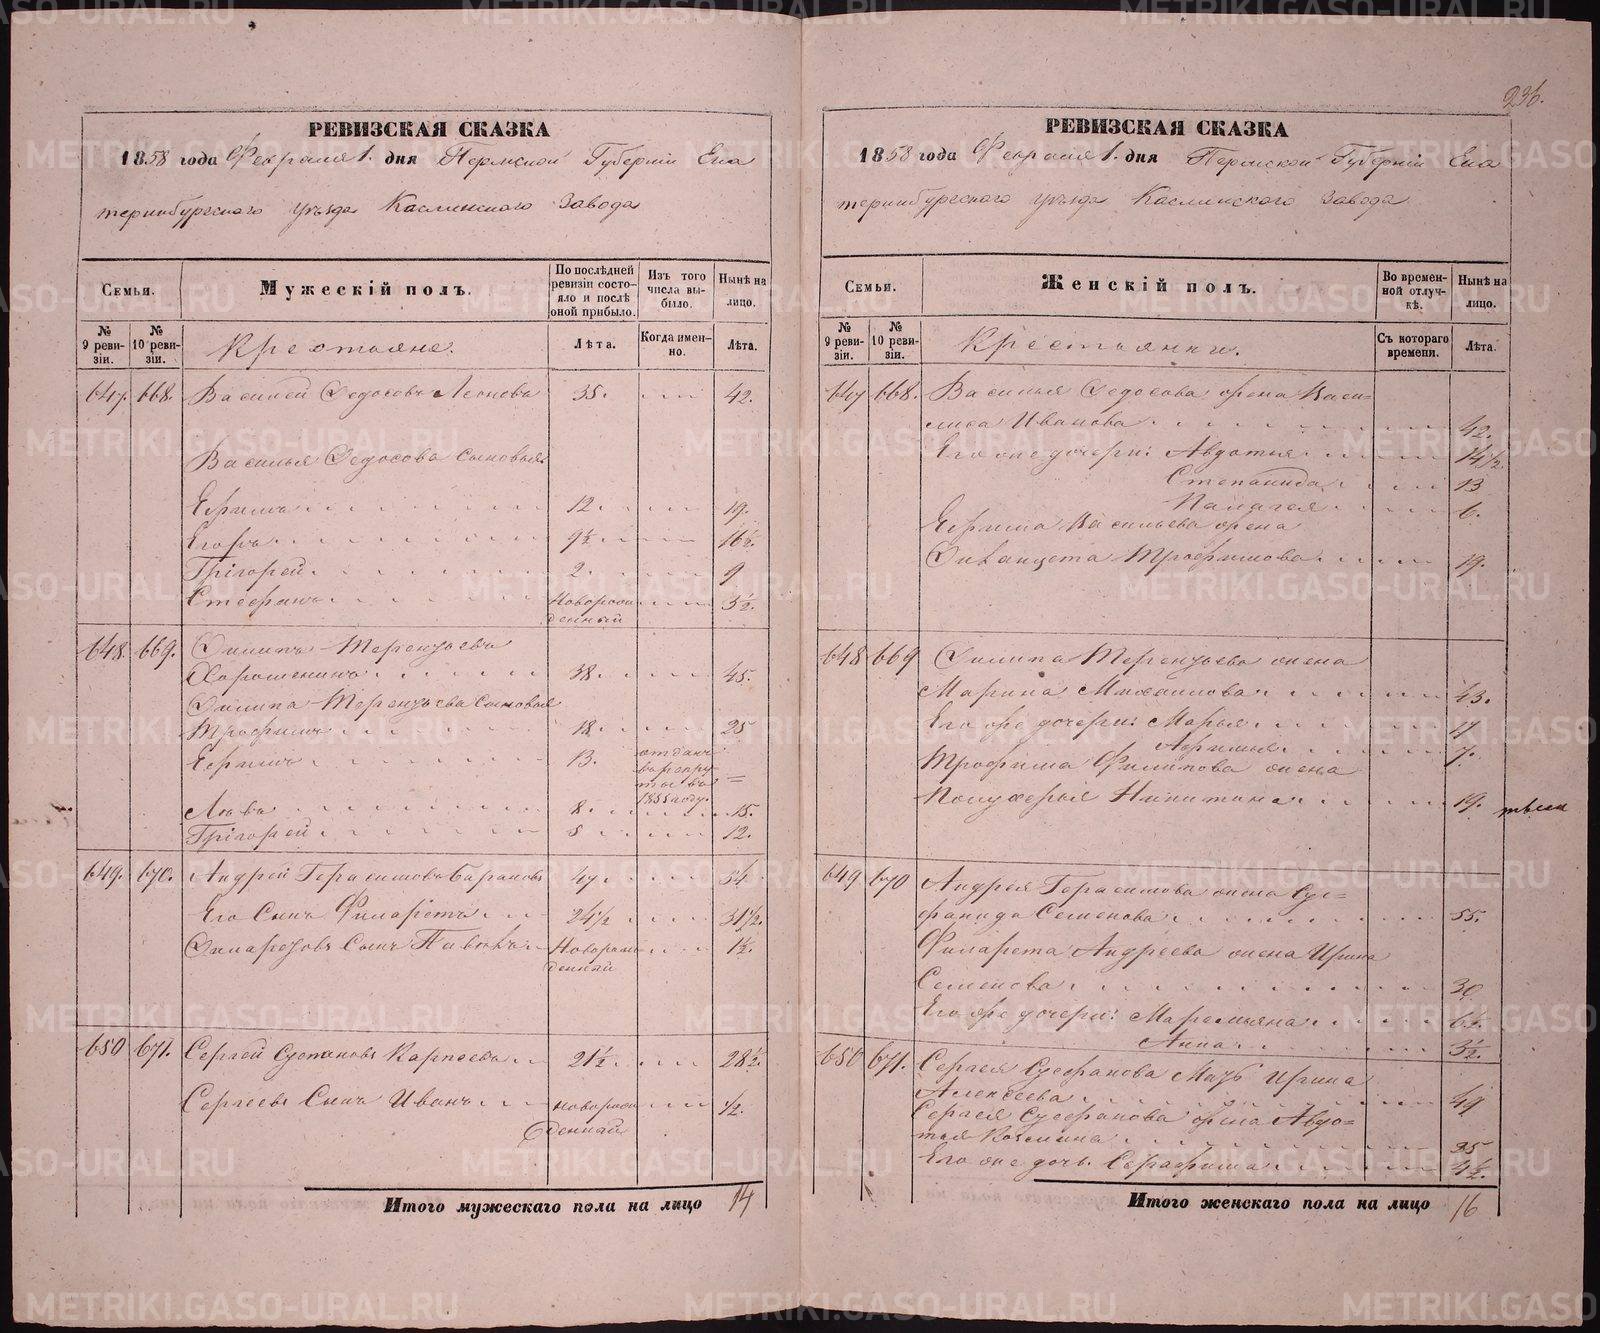 РЕВИЗСКАЯ СКАЗКА
1858 года Февраля 1. дня Пермской Губерніи Ека
теринбургского уѣзда Каслинского Завода
Семьи.
Мужескій полъ.
По послѣдней ревизіи состояло и послѣ оной прибыло.
Изъ того числа выбыло.
Нынѣ на лицо.
№ 9 ревизіи.
№ 10 ревизіи.
Крестьяне.
Лѣта.
Когда именно.
Лѣта.
647. 668. Василей Федосовъ Леоновъ 35. 42.
Василья Федосова сыновья
Ефимъ 12. 19.
Егоръ 9½ 16½.
Григорей 2. 9
Стефанъ Новорож 3½.
денный
648. 669. Филипъ Терентьевъ
Хорошенинъ 38. 45.
Филипа Терентьева Сыновья
Трофимъ 18. 25
Ефимъ 13. отданъ
в рекру
ты въ =
1855 году.
Левъ 8. 15.
Григорей 5 12.
649. 670. Андрей Герасимовъ Барановъ 47. 54
Его Сынъ Филаретъ 24½ 31½.
Филаретовъ Сынъ Павелъ Новорож 1½.
денный
650 671. Сергей Стефановъ Карпеевъ 21½ 28½.
Сергеевъ Сынъ Иванъ новорож ½.
денный
Итого мужескаго пола на лицо 14
236.
РЕВИЗСКАЯ СКАЗКА
1858 года Февраля 1. дня Пермской Губерніи Ека
теринбургского уѣзда Каслинского Завода
Семьи.
Женскій полъ.
Во временной отлучкѣ.
Нынѣ на лицо.
№ 9 ревизіи.
№ 10 ревизіи.
Крестьянки.
Съ котораго времени.
Лѣта.
647 668. Василья Федосова жена Васи=
лиса Иванова 42.
Его же дочери: Авдотья 14½
Степанида 13
Палагея 6.
Ефима Васильева жена
Трофимова 19.
648 669 Филипа Терентьева жена
Марина Михаилова 43.
Его же дочери: Марья 17
Афимья 7.
Трофима Филипова жена
Никитина 19.
649 670 Андрея Герасимова жена Сте=
фанида Семенова 55.
Филарета Андреева жена Ирина
Семенова 30
Его же дочери: Маремьяна 6½.
Анна 3½.
650 671. Сергея Стефанова Мать Ирина
Алексеева 49
Сергея Стефанова жена Авдо=
тья Козмина 35
Его же дочь Серафима 4½.
Итого женскаго пола на лицо 16
METRIKI.GASO-URAL.RU